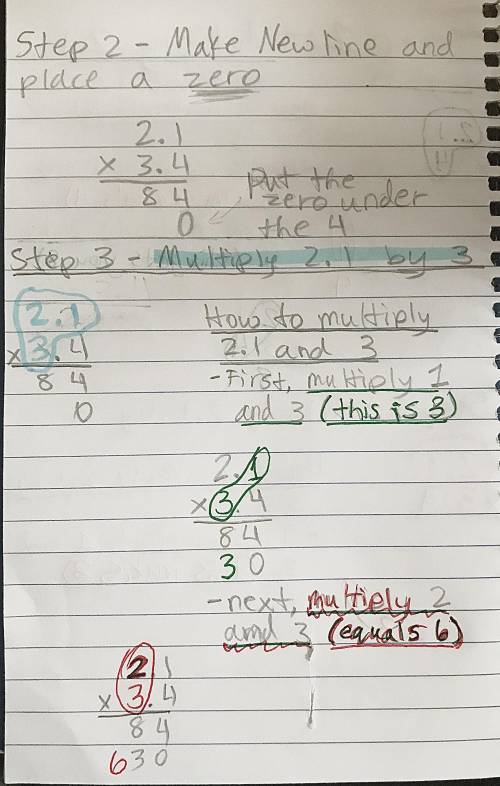 Step 2 - Make New line and
place a zero
2.1
x 3.4
84
0
put the
zero under
the 4
Step 3 - Multiply 2.1 by 3
2.1
x 3.4
84
0
How to multiply
2.1 and 3
- First, multiply 1
and 3 (this is 3)
2.1
x 3.4
84
30
- next, multiply 2
and 3 (equals 6)
2 1
x 3.4
84
630